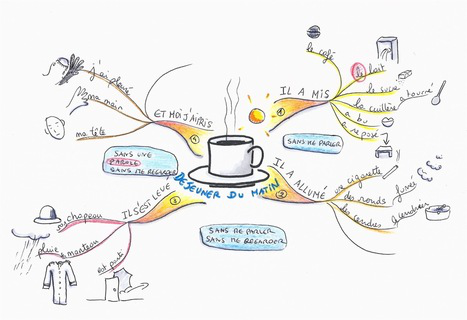 DEJEUNER DU MATIN
1
IL A MIS
le café
le lait
le sucre
la cuillère
a tourné
a bu
a reposé
SANS ME PARLER
2
IL A ALLUMÉ
une cigarette
des ronds
fumée
des cendres
cendrier
SANS ME PARLER
SANS ME REGARDER
3
IL S'EST LEVÉ
son chapeau
manteau
pluie
est parti
4
ET MOI J'AI PRIS
ma tête
ma main
j'ai pleuré
SANS UNE
PAROLE
SANS ME REGARDER